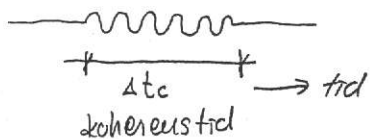 Δtc
→ tid
koherenstid